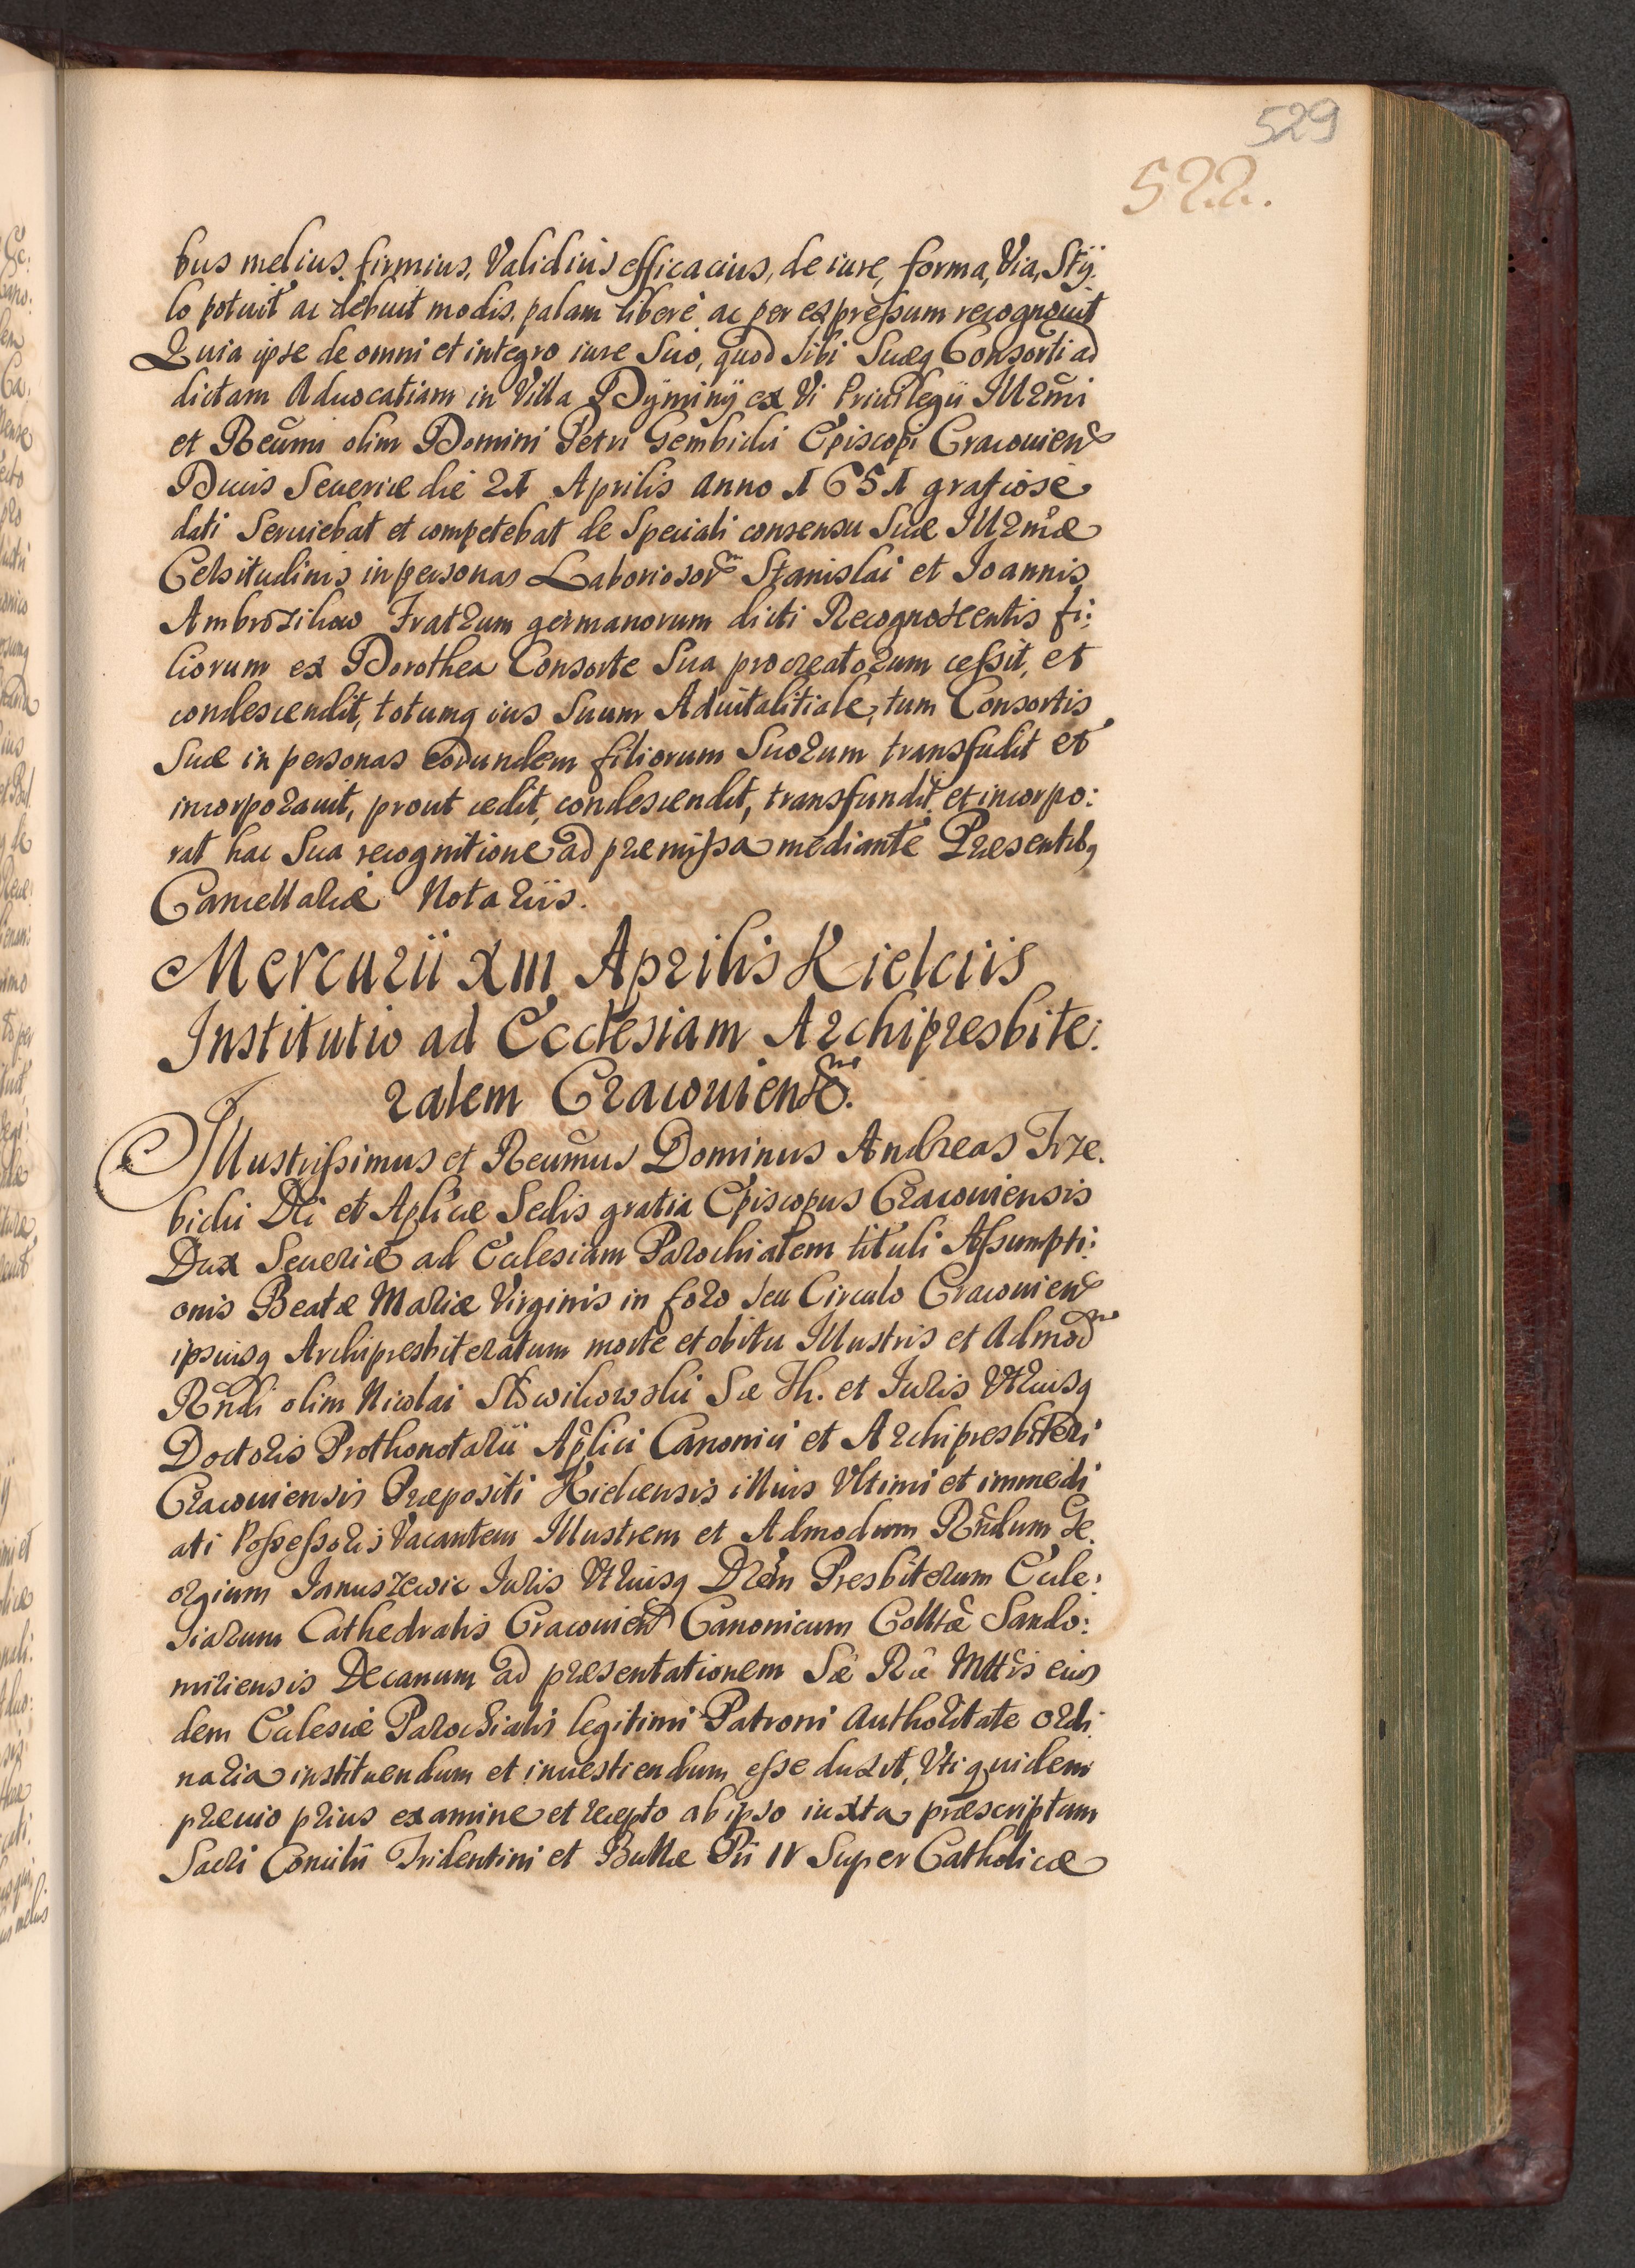 529
522.
bus melius, firmius, Validius efficacius, de iure, forma, Via, Stÿ
lo potuit ac debuit modis, palam liberè ac per expressum recognouit
Quia ipse de omni et integro iure Suo, quod Sibi Suæq Consorti ad
dictam Aduocatiam in Villa Dÿminÿ ex Vi Priuilegii Illmi
et Reumi olim Domini Petri Gembicki Episcopi Cracouien
Ducis Seueriæ die 21 Aprilis Anno 1651 gratiosè
dati Seruiebat et competebat de Speciali consensu Suæ Illmæ
Celsitudinis in personas Laboriosor Stanislai et Joannis
Ambrozikow Fratrum germanorum dicti Recognoscentis fi:
liorum ex Dorothea Consorte Sua procreatorum cessit, et
condescendit, totumq ius Suum Aduitalitiale, tum Consortis
Suæ in personas eorundem filiorum Suorum transfudit et
incorporauit, prout cedit, condescendit, transfundit, et incorpo:
rat hac Sua recognitione ad præmissa mediante Præsentibq
Cancellariæ Notariis.
Mercurii XIII Aprilis Kielciis
Institutio ad Ecclesiam Archipresbite:
ralem Cracouiens.
Illustrissimus et Reumus Dominus Andreas Trze.
bicki Dei et Aplicæ Sedis gratia Episcopus Cracouiensis
Dux Seueriæ ad Ecclesiam Parochialem tituli Assumpti:
onis Beatæ Mariæ Virginis in foro seu Circulo Cracouien
ipsiusq Archipresbiteratum morte et obitu Illustris et Admod
Rndi olim Nicolai Słowikowski Sæ Th. et Juris Vtriusq
Doctoris Prothonotarii Aplici Canonici et Archipresbiteri
Cracouiensis Præpositi Kielcensis illius Vltimi et immedi
ati Possessoris Vacantem Illustrem et Admodum Rndum Ge.
orgium Januszewic Juris Vtriusq Drem Presbiterum Eccle:
siarum Cathedralis Cracouien Canonicum Colltæ Sando:
miriensis Decanum ad præsentationem Sæ Ræ Mttis eius
dem Ecclesiæ Parochialis legitimi Patroni Authoritate ordi
naria instituendum et inuestiendum esse duxit, Vti quidem
præuio prius examine et recepto ab ipso iuxta præscriptum
Sacri Concilii Tridentini et Bullæ Pii IV Super Catholicæ